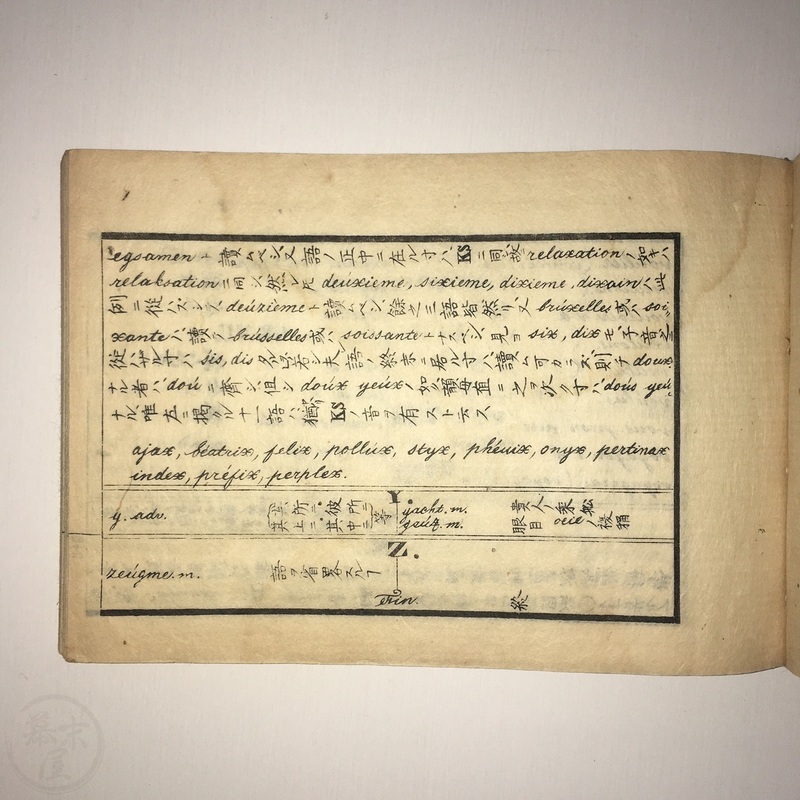 egsamen ト讀ムベシ又語ノ正中ニ在ル寸ハKSニ同故relaxationノ如キハ
relaksation ニ同シ然レ𪜈 deuxieme, sixieme, dixieme, dixain ハ此
例ニ從ハズシテ deúzieme ト讀ムベシ餘之三語皆然リ又 brúxelles 或ハ soi-
xante ハ讀ノ brússelles 或ハ soissante トナスベシ見ヨ six, dix モ子音之
從ハザル寸ハ sis, dis タル若シ夫語ノ終末ニ居ル寸ハ讀ム可カラズ則チ doux
ナル者ハ doú ニ齊シ但シ doux yeúx ノ如ク韻母直ニ之ニ次グ寸ハ doús yeú
ナル唯左ニ掲クル十一語ハ猶KSノ音ヲ有ストテス
ajax, béatrix, felix, pollúx, styx, phéuix, onyx, pertinax
index, préfix, perplex.
Y.
y. adv.
其所ニ・彼所ニ
其上ニ・其中ニ
等
yacht. m.
貴人ノ乗舩
yeúx. m.
眼目 oeil ノ複稱
Z.
zeúgme. m.
語ヲ省畧スルヿ
Fin.
終